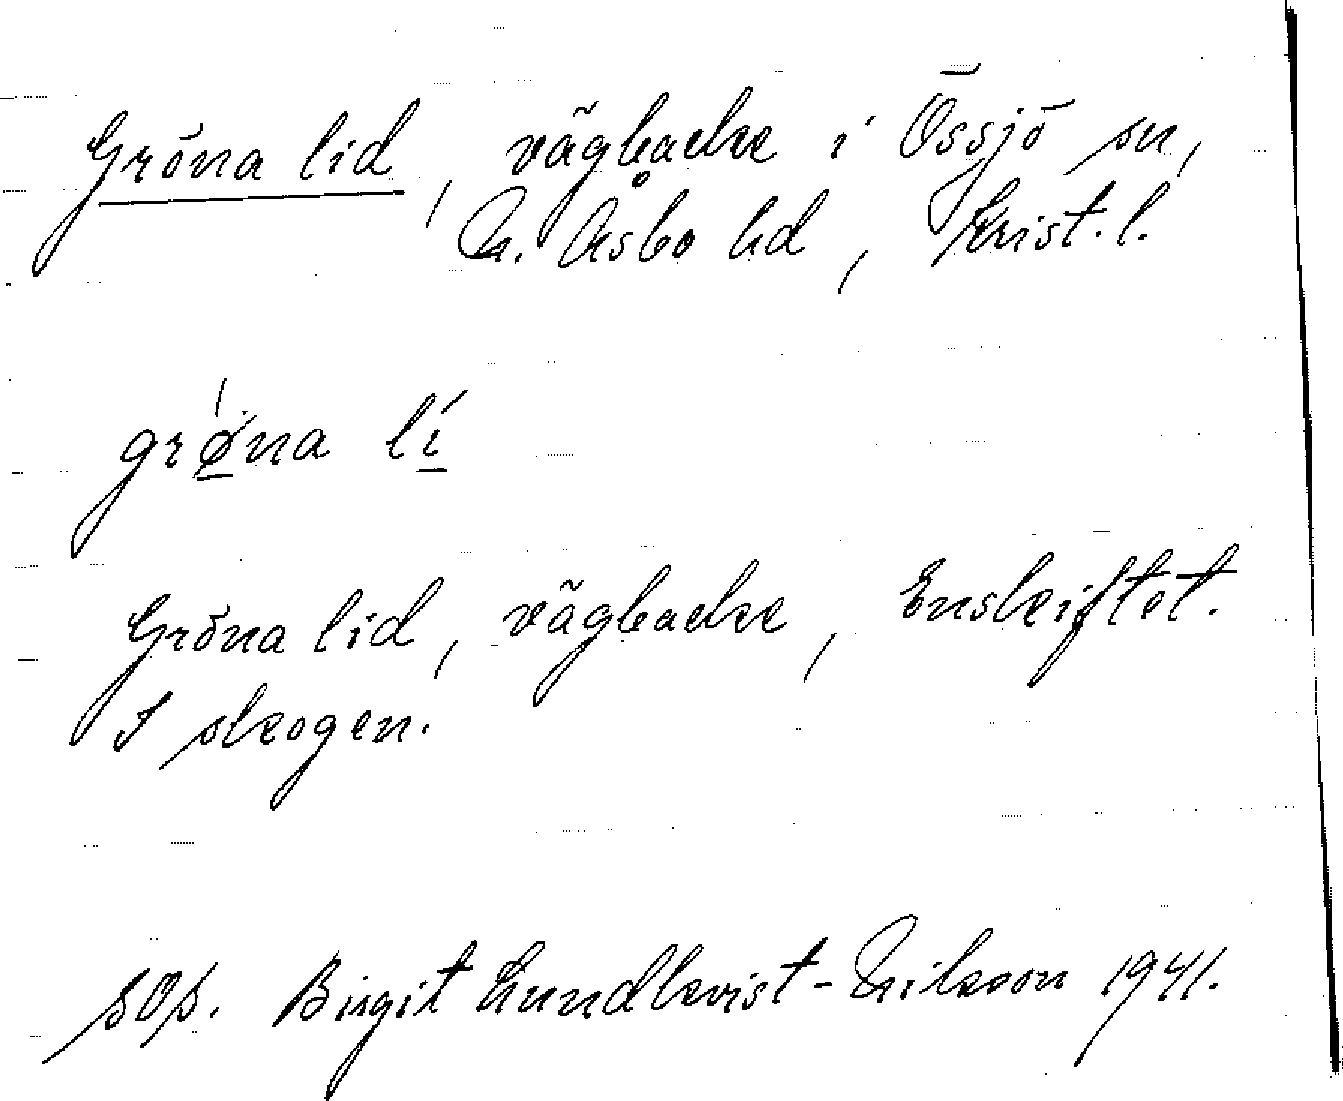 Gröna lid, vägbacke i Össjö sn,
N. Åsbo hd, Krist. l.
grøna lí
Gröna lid, vägbacke, Enskiftet.
I skogen.
sop. Birgit Lundkvist-Nilsson 1941.